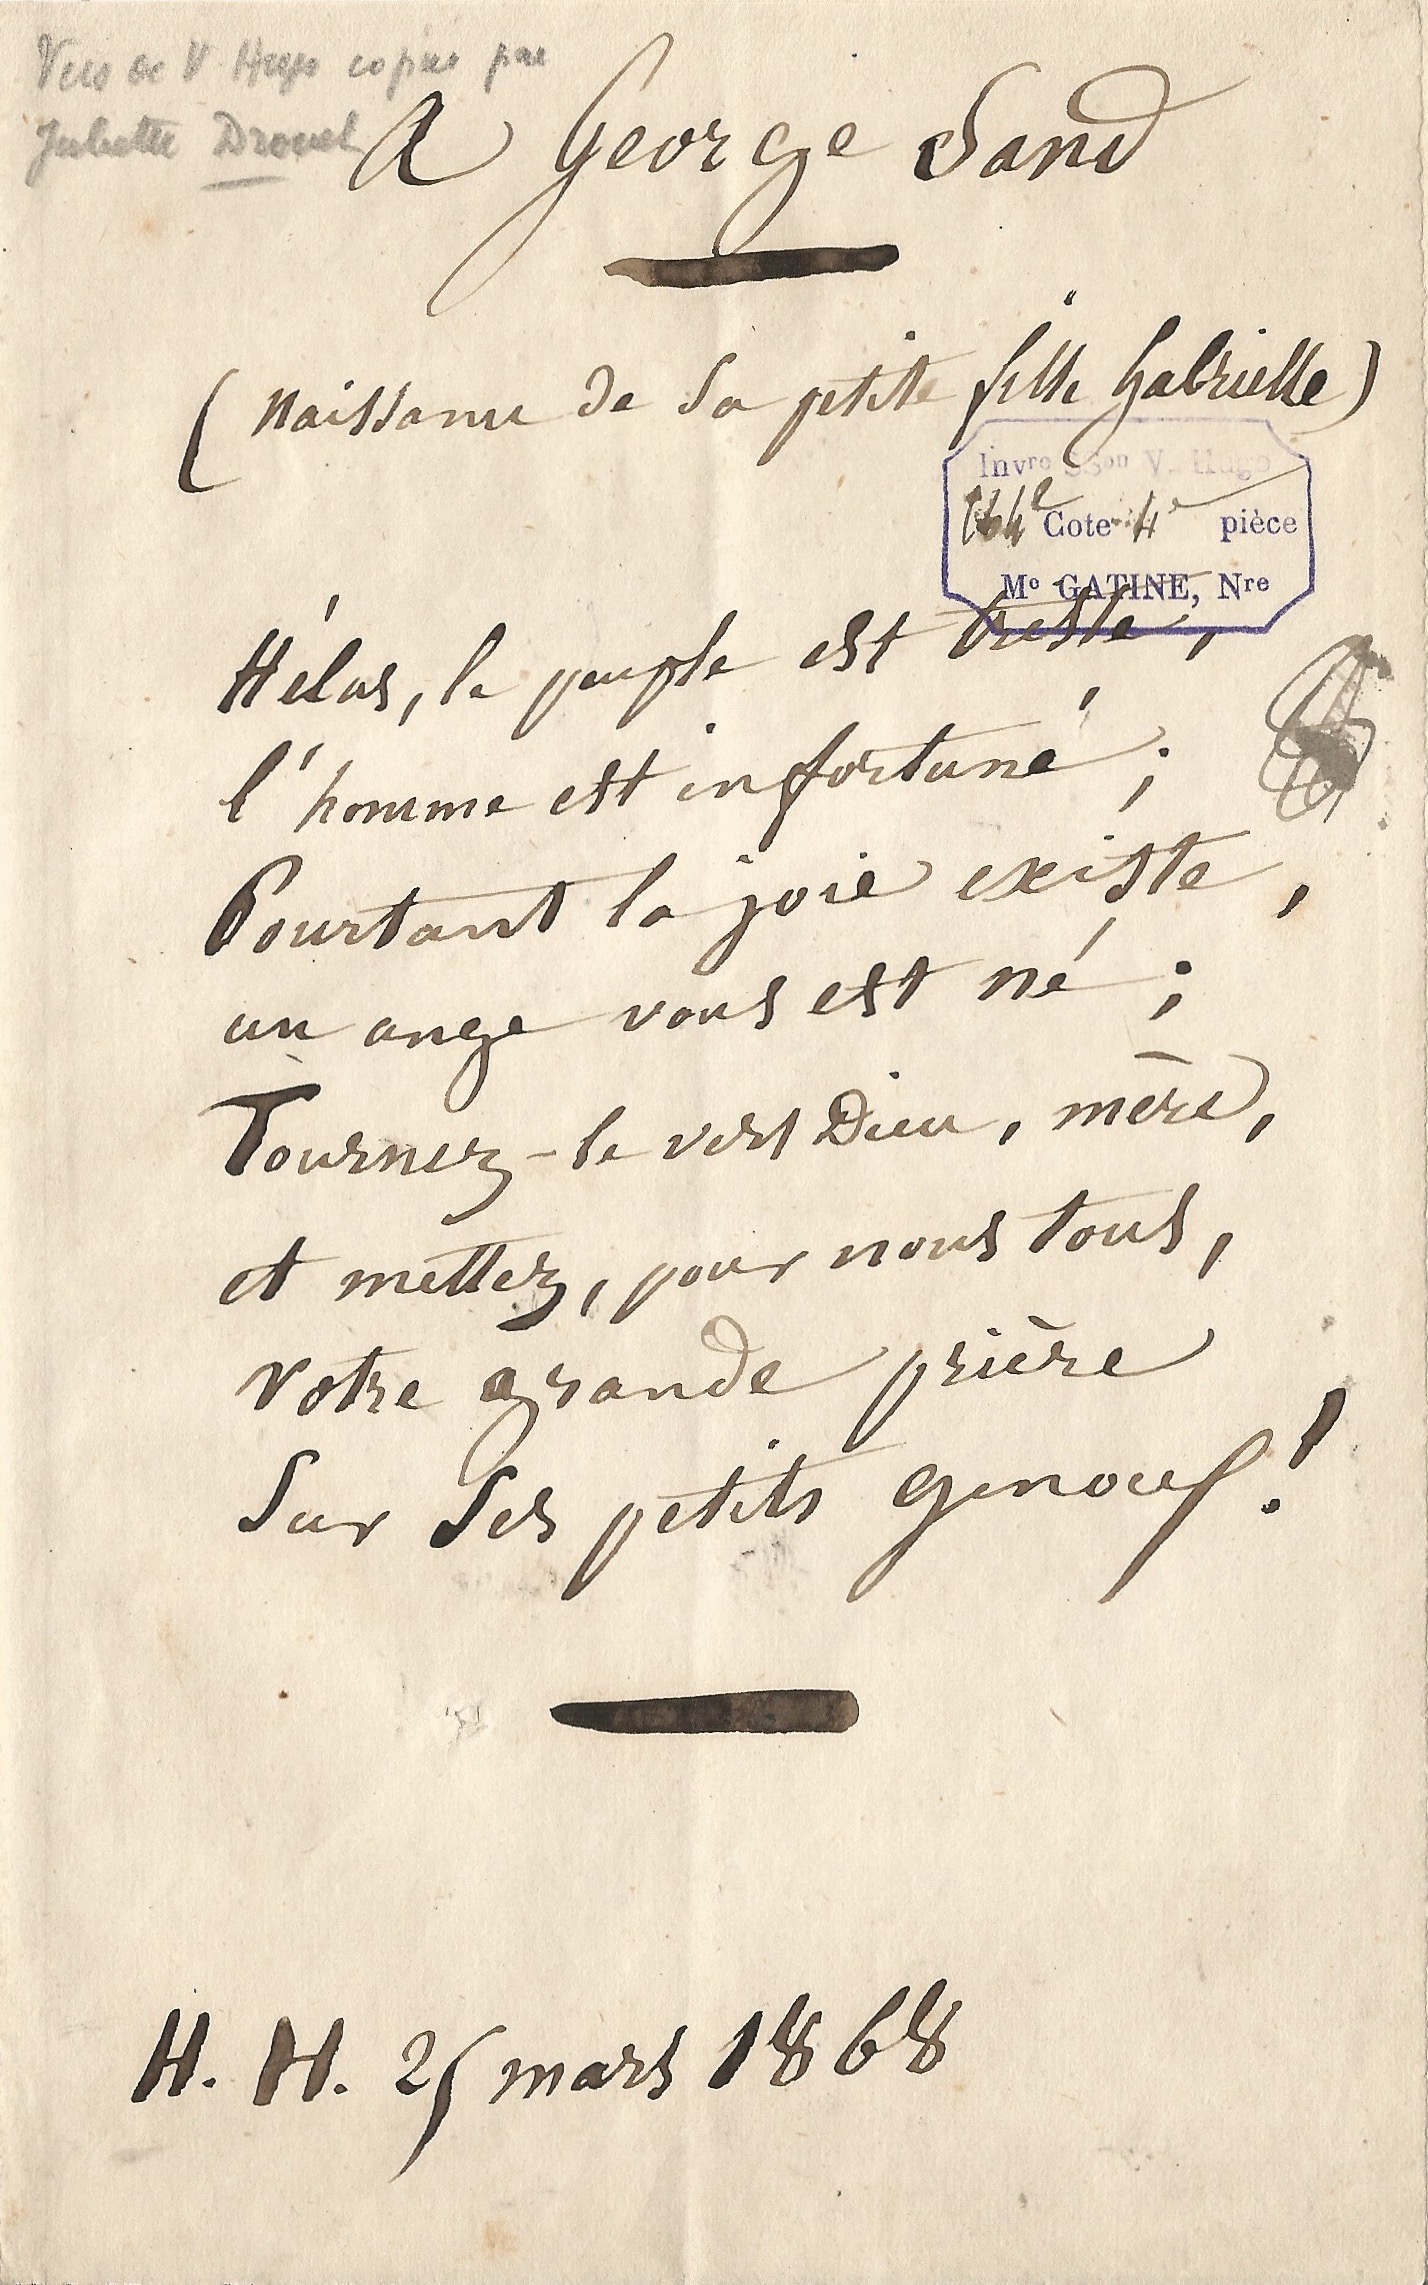 Vers de V. Hugo copiés par
Juliette Drouet
A George Sand
(Naissance de sa petite fille Gabrielle)
Invre Sson V. Hugo
164e Cote 4e pièce
Me GATINE, Nre
Hélas, le peuple est triste,
l'homme est infortuné ;
Pourtant la joie existe,
un ange vous est né ;
Tournez-le vers Dieu, mère,
et mettez, pour nous tous,
votre grande prière
Sur ses petits genoux !
H. H. 25 mars 1868